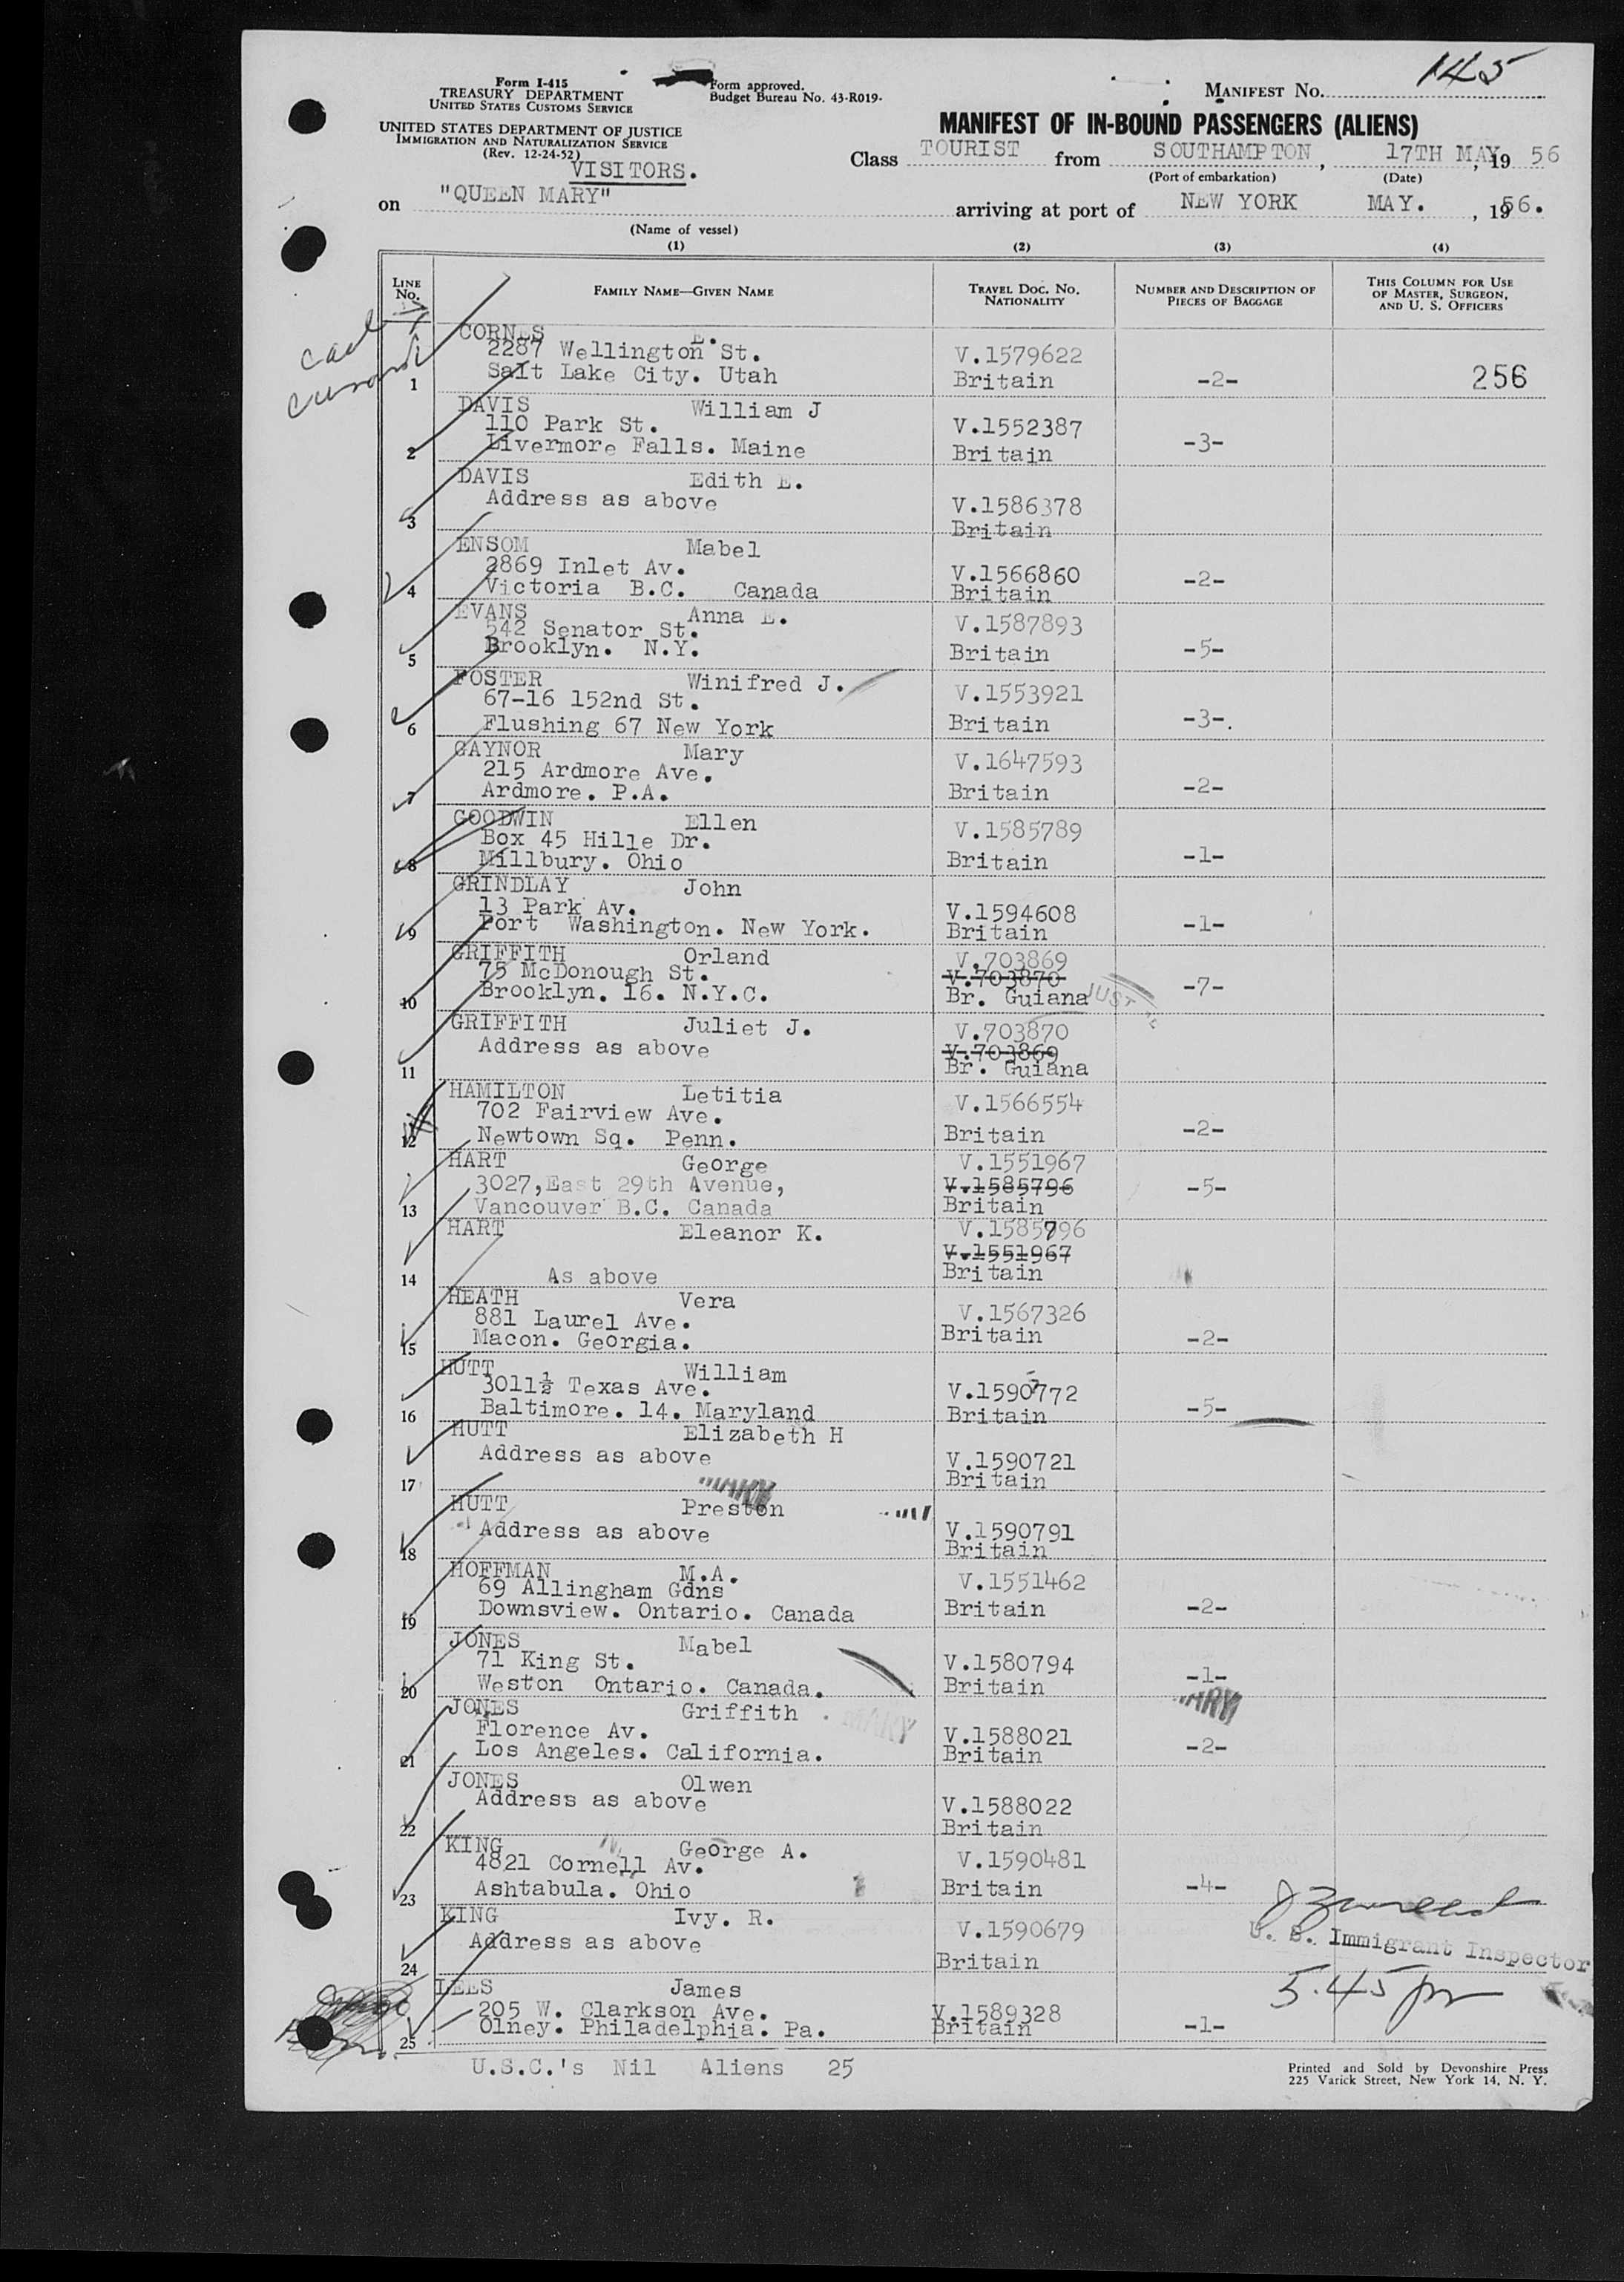 145
Form I-415
TREASURY DEPARTMENT
UNITED STATES CUSTOMS SERVICE
Form approved.
Budget Bureau No. 43-R019-
MANIFEST NO.
UNITED STATES DEPARTMENT OF JUSTICE
IMMIGRATION AND NATURALIZATION SERVICE
(Rev. 12-24-52)
VISITORS.
MANIFEST OF IN-BOUND PASSENGERS (ALIENS)
Class TOURIST from SOUTHAMPTON, 17TH MAY, 19 56
(Port of embarkation) (Date)
on "QUEEN MARY" arriving at port of NEW YORK MAY. , 1956.
(Name of vessel)
(1) (2) (3) (4)
LINE NO. FAMILY NAME—GIVEN NAME TRAVEL DOC. NO. NATIONALITY NUMBER AND DESCRIPTION OF PIECES OF BAGGAGE THIS COLUMN FOR USE OF MASTER, SURGEON, AND U. S. OFFICERS
CORNES E.
2287 Wellington St. V.1579622
1 Salt Lake City. Utah Britain -2- 256
DAVIS William J
110 Park St. V.1552387
2 Livermore Falls. Maine Britain -3-
DAVIS Edith E.
Address as above V.1586378
3 Britain
ENSOM Mabel
2869 Inlet Av. V.1566860
4 Victoria B.C. Canada Britain -2-
EVANS Anna E.
542 Senator St. V.1587893
5 Brooklyn. N.Y. Britain -5-
FOSTER Winifred J.
67-16 152nd St. V.1553921
6 Flushing 67 New York Britain -3-.
GAYNOR Mary
215 Ardmore Ave. V.1647593
7 Ardmore. P.A. Britain -2-
GOODWIN Ellen
Box 45 Hille Dr. V.1585789
8 Millbury. Ohio Britain -1-
GRINDLAY John
13 Park Av. V.1594608
9 Port Washington. New York. Britain -1-
GRIFFITH Orland V.703869
75 McDonough St. V.703870
10 Brooklyn. 16. N.Y.C. Br. Guiana -7-
GRIFFITH Juliet J. V.703870
Address as above V.703869
11 Br. Guiana
HAMILTON Letitia
702 Fairview Ave. V.1566554
12 Newtown Sq. Penn. Britain -2-
HART George V.1551967
3027,East 29th Avenue, V.1585796 -5-
13 Vancouver B.C. Canada Britain
HART Eleanor K. V.1585796
V.1551967
14 As above Britain
HEATH Vera
881 Laurel Ave. V.1567326
15 Macon. Georgia. Britain -2-
HUTT William
3011½ Texas Ave. V.1590772
16 Baltimore. 14. Maryland Britain -5-
HUTT Elizabeth H
Address as above V.1590721
17 Britain
MARY
HUTT Preston
Address as above V.1590791
18 Britain
HOFFMAN M.A.
69 Allingham Gdns V.1551462
19 Downsview. Ontario. Canada Britain -2-
JONES Mabel
71 King St. V.1580794
20 Weston Ontario. Canada. Britain -1-
MARY
JONES Griffith MARY
Florence Av. V.1588021
21 Los Angeles. California. Britain -2-
JONES Olwen
Address as above V.1588022
22 Britain
KING George A.
4821 Cornell Av. V.1590481
23 Ashtabula. Ohio Britain -4-
KING Ivy. R.
Address as above V.1590679
24 Britain
U. S. Immigrant Inspector
5.45 pm
LEES James
205 W. Clarkson Ave. V.1589328
25 Olney. Philadelphia. Pa. Britain -1-
U.S.C.'s Nil Aliens 25
Printed and Sold by Devonshire Press
225 Varick Street, New York 14, N. Y.